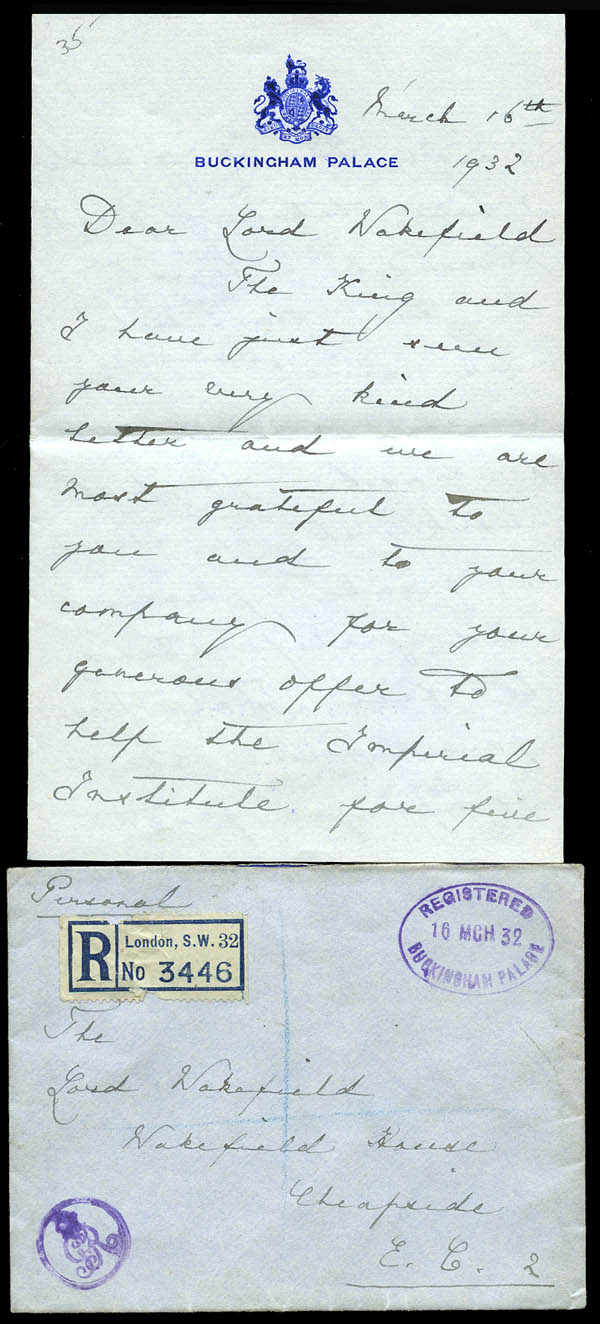 35
March 16th
BUCKINGHAM PALACE
1932
Dear Lord Wakefield
The King and
I have just seen
your very kind
letter and we are
most grateful to
you and to your
company for your
generous offer to
help the Imperial
Institute for five
Personal
R
London, S.W. 32
No 3446
REGISTERED
16 MCH 32
BUCKINGHAM PALACE
The
Lord Wakefield
Wakefield House
Cheapside
E. C. 2